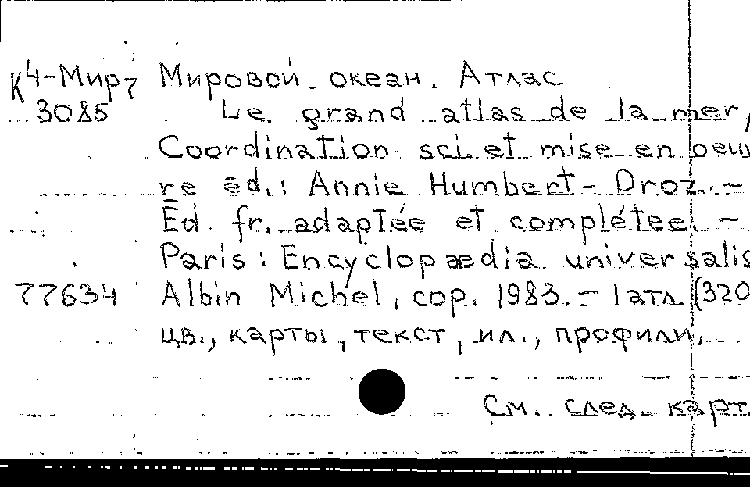 К4-Мир7 Мировой океан. Атлас
3085 Le grand atlas de la mer,
Coordination sci. et mise en oeuv
re éd.: Annie Humbert-Droz. –
Éd. fr. adaptée et complétée. –
Paris: Encyclopædia universalis
77634 Albin Michel, cop. 1983. – 1 атл. (320
цв., карты, текст, ил., профили,
См. след. карт